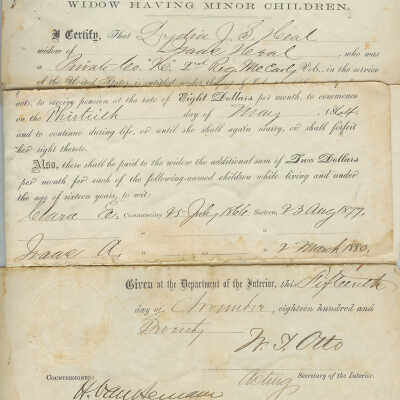 WIDOW HAVING MINOR CHILDREN.
I Certify, That Lydia J. B. Heal
widow of Isaac Heal, who was
a Private Co. "K" 2nd Reg. Me Cavly Vols., in the service
of the United States, is entitled under
act, to receive pension at the rate of Eight Dollars per month, to commence
on the Thirtieth day of May, 1864
and to continue during life, or until she shall again marry, or shall forfeit
her right thereto.
Also, there shall be paid to the widow the additional sum of Two Dollars
per month for each of the following-named children while living and under
the age of sixteen years, to wit:
Clara E. Commencing 25 July 1866. Sixteen, 23 Aug 1877.
Isaac A. " " " 2 March 1880.
Given at the Department of the Interior, this Fifteenth
day of November, eighteen hundred and
Seventy
W. T. Otto
Acting Secretary of the Interior.
COUNTERSIGNED: